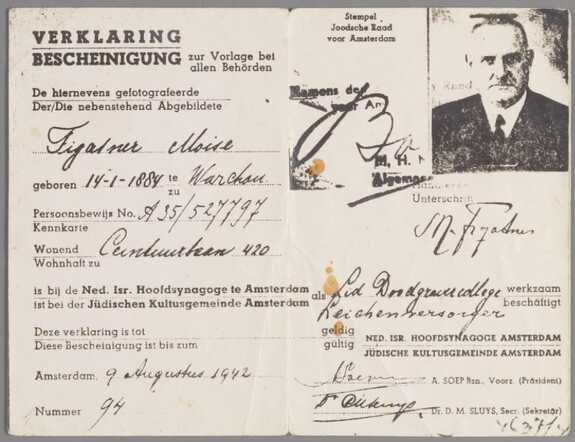 VERKLARING
BESCHEINIGUNG zur Vorlage bei
allen Behörden
De hiernevens gefotografeerde
Der/Die nebenstehend Abgebildete
Figatner Moise
geboren 14-1-1884 te Warchau
zu
Persoonsbewijs No. A35/527797
Kennkarte
Wonend Ceintuurbaan 420
Wohnhaft zu
is bij de Ned. Isr. Hoofdsynagoge te Amsterdam
ist bei der Jüdischen Kultusgemeinde Amsterdam
Deze verklaring is tot
Diese Bescheinigung ist bis zum
Amsterdam, 9 Augustus 1942
Nummer 94
Stempel
Joodsche Raad
voor Amsterdam
Namens de
voor Am
M. H.
Algemee
Unterschrift
M. Figatner
als Lid Doodgraversloge werkzaam
Leichenversorger beschäftigt
geldig
gültig
NED. ISR. HOOFDSYNAGOGE AMSTERDAM
JÜDISCHE KULTUSGEMEINDE AMSTERDAM
A. SOEP Bzn., Voorz. (Präsident)
Dr. D. M. SLUYS, Secr. (Sekretär)